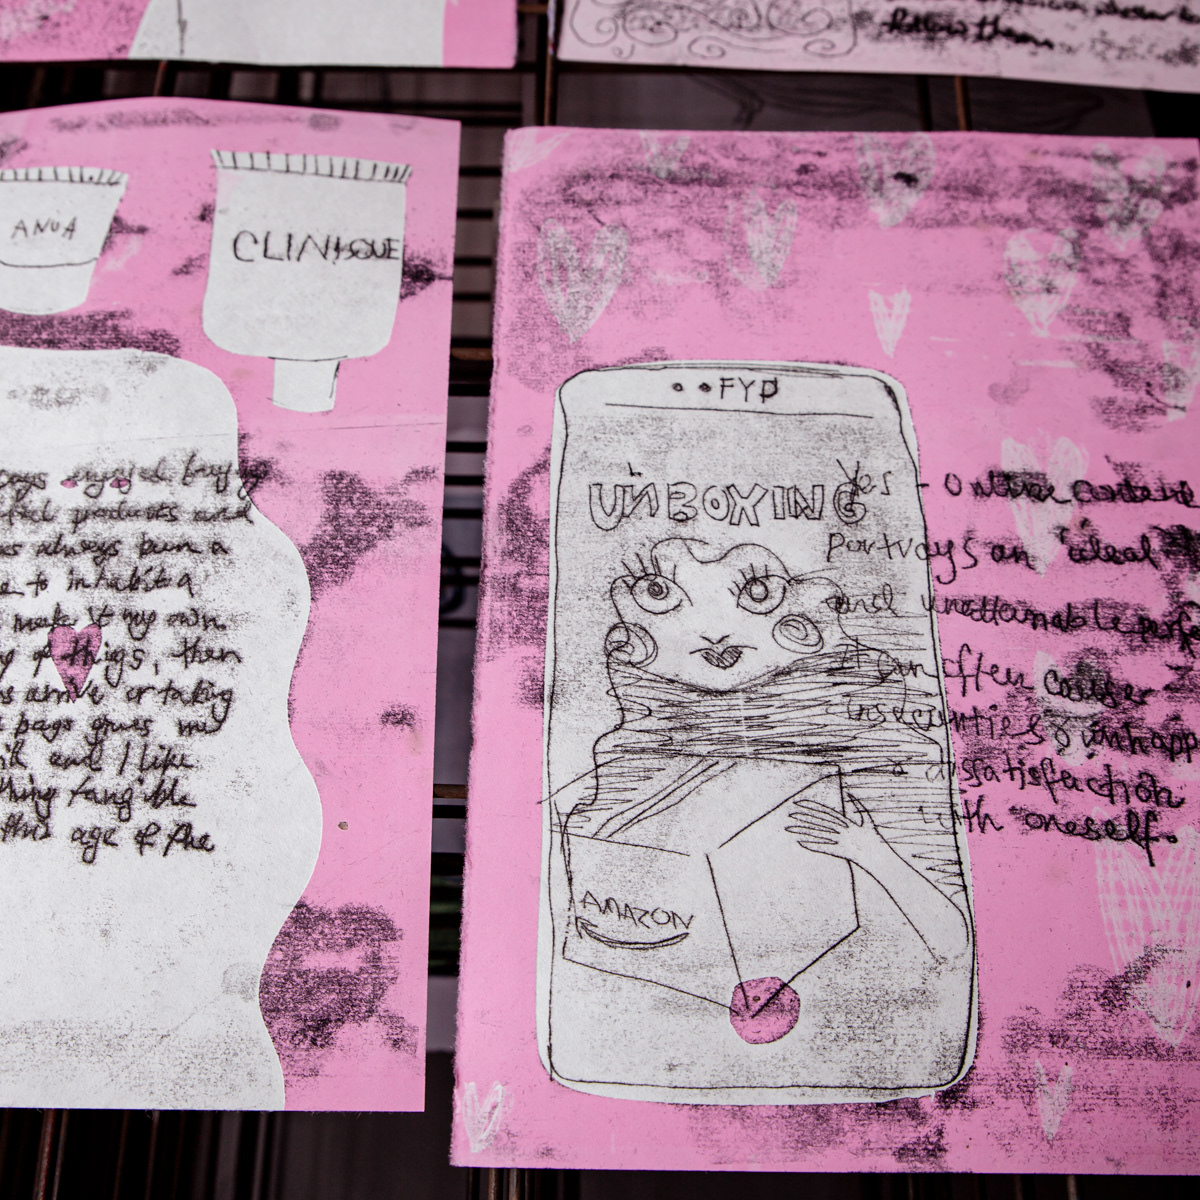 follow them
ANUA
CLINIQUE
enjoyed buying
products and
always been a
to inhabit a
make it my own
of things, then
arrive or taking
page gives me
and I like
thing tangible
this age of the
FYP
UNBOXING
AMAZON
Yes - online content
portrays an ideal
and unattainable
It can often cause
insecurities, unhapp
dissatisfaction
with oneself.